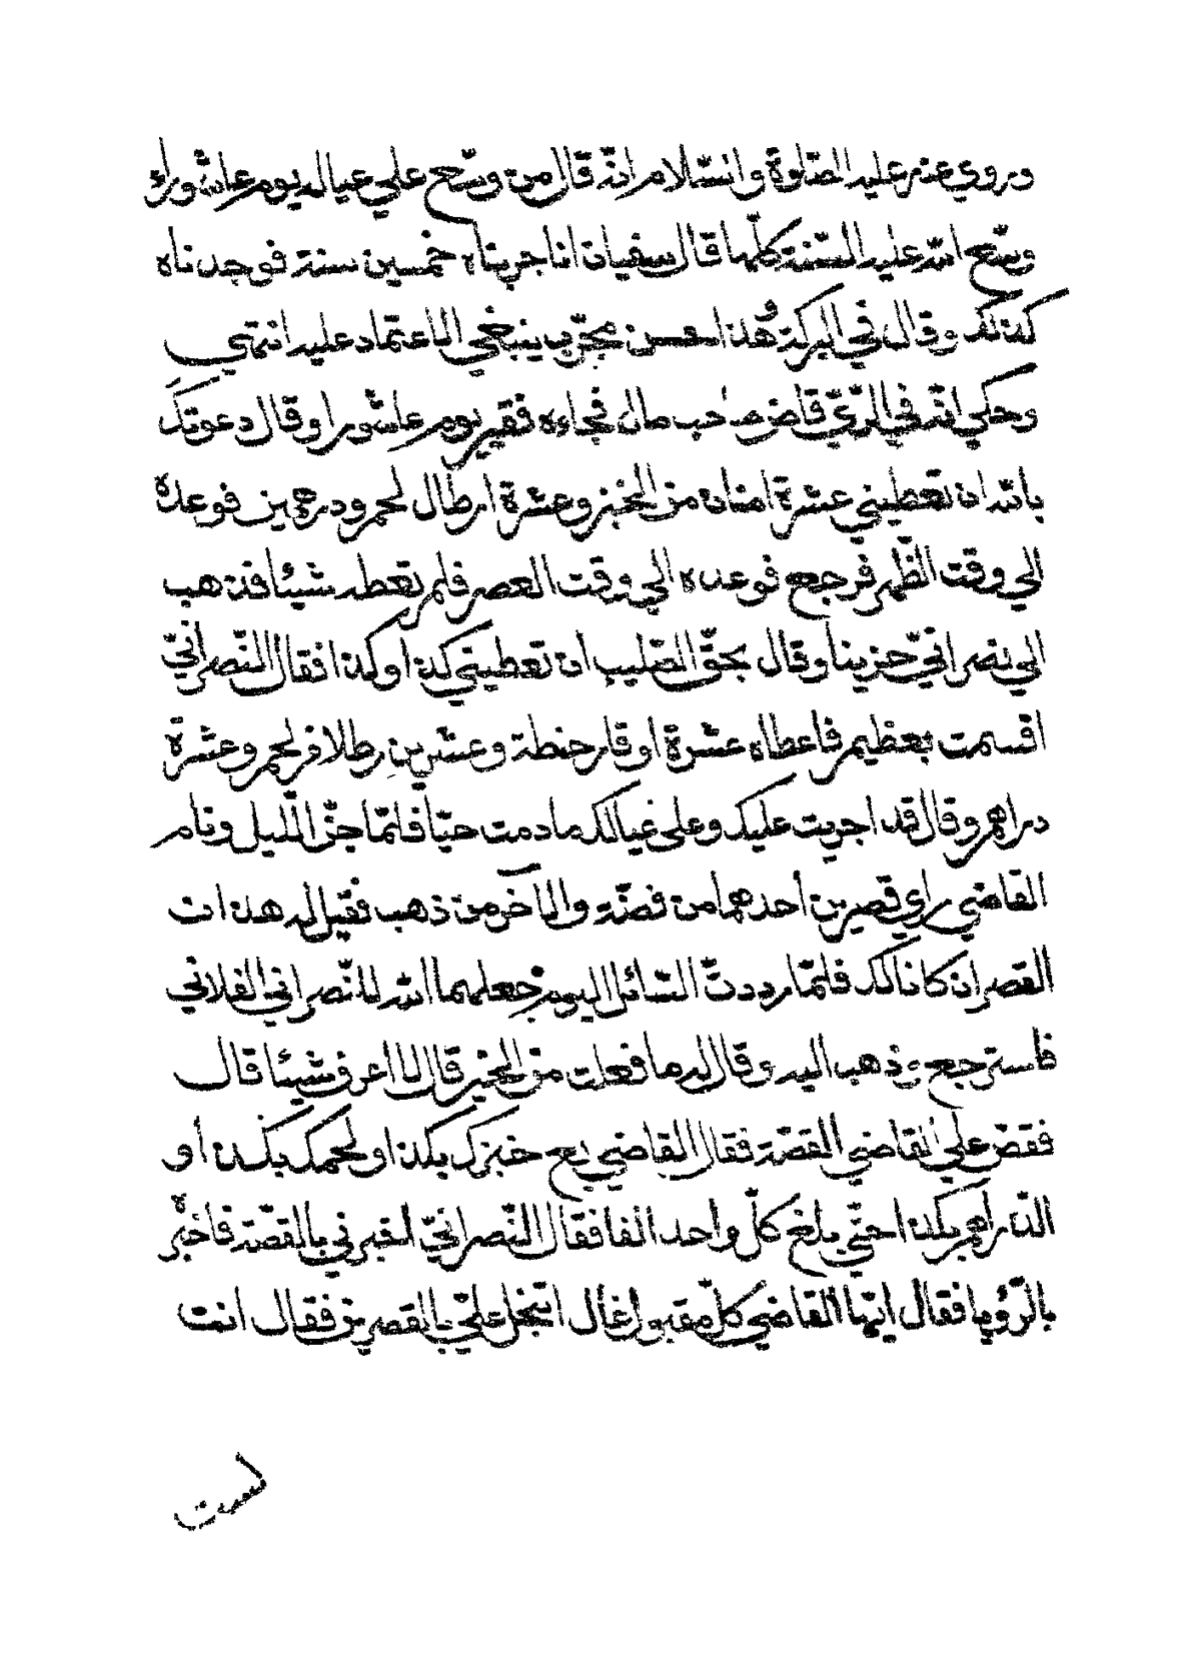 وروي عنه عليه الصّلوة والسّلام انّه قال من وسّع علي عياله يوم عاشوراء
وسّع الله عليه السّنة كلّها قال سفيان انا جربناه خمسين سنة فوجدناه
كذلك وقال في البركة هذا احسن مجرّب ينبغي الاعتماد عليه انتهي
وحكي انّه في الرّيّ قاض صاحب مال فجاءه فقير يوم عاشورا وقال دعوتك
بالله ان تعطيني عشرة امنان من الخبز وعشرة ارطال لحم ودرهمين فوعده
الي وقت الظّهر فرجع فوعده الي وقت العصر فلم تعطه شيئا فذهب
الي نصرانيّ حزينا وقال بحقّ الصّليب ان تعطيني كذا وكذا فقال النّصرانيّ
اقسمت بعظيم فاعطاه عشرة اوقار حنطة وعشرين رطلا من لحم وعشرة
دراهم وقال قد اجريت عليك وعلى عيالك ما دمت حيّا فلمّا جنّ اللّيل ونام
القاضي راي قصرين أحدهما من فضّة والآخر من ذهب فقيل له هذان
القصران كانا لك فلمّا رددتّ السّائل اليوم جعلهما الله للنّصراني الفلاني
فاسترجع وذهب اليه وقال له ما فعلت من الخير قال لا اعرف شيئا قال
فقصّ علي القاضي القصّة فقال القاضي بع خبزك بكذا ولحمك بكذا أو
الدّراهم بكذا حتّي بلغ كلّ واحد الفا فقال النّصرانيّ أخبرني بالقصّة فاخبره
بالرّؤيا فقال ايّها القاضي كلّ مقبول غال اتبخل عليّ بالقصرين فقال انت
لست